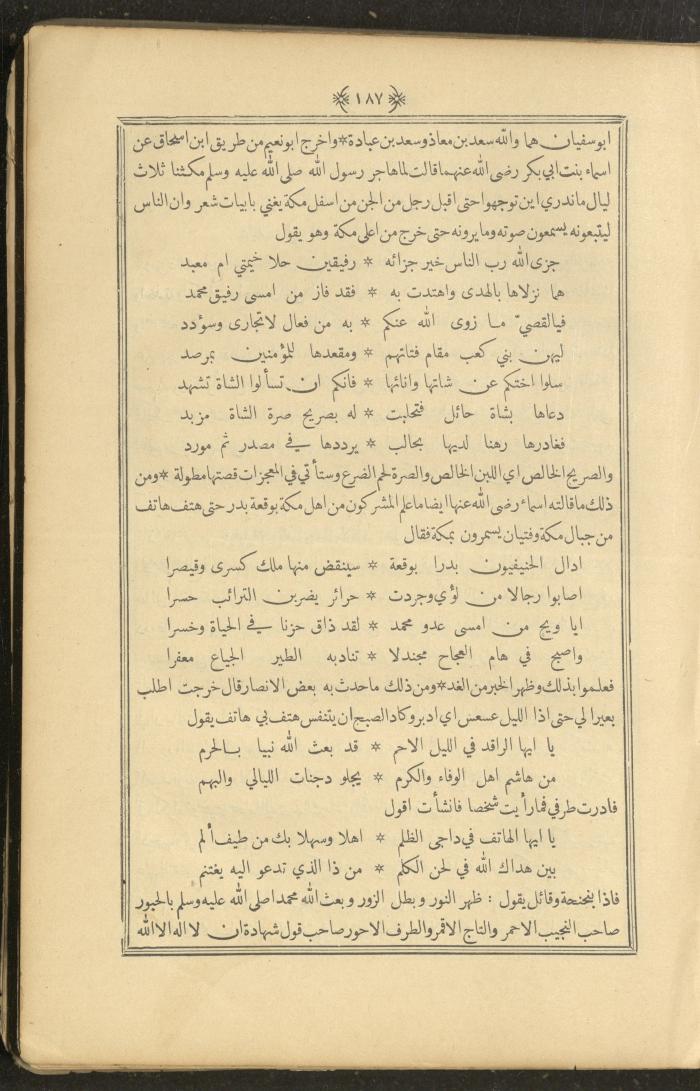 ١٨٧
ابو سفيان هما والله سعد بن معاذ وسعد بن عبادة * واخرج ابو نعيم من طريق ابن اسحاق عن
اسماء بنت ابي بكر رضى الله عنهما قالت لما هاجر رسول الله صلى الله عليه وسلم مكثنا ثلاث
ليال ماندري اين توجهوا حتى اقبل رجل من الجن من اسفل مكة يغني بابيات شعر وان الناس
ليتبعونه يسمعون صوته وما يرونه حتى خرج من اعلى مكة وهو يقول
جزى الله رب الناس خير جزائه * رفيقين حلا خيمتي ام معبد
هما نزلاها بالهدى واهتدت به * فقد فاز من امسى رفيق محمد
فيالقصيّ ما زوى الله عنكم * به من فعال لاتجارى وسؤدد
ليهن بني كعب مقام فتاتهم * ومقعدها للمؤمنين بمرصد
سلوا اختكم عن شاتها وانائها * فانكم ان تسألوا الشاة تشهد
دعاها بشاة حائل فتحلبت * له بصريح صرة الشاة مزبد
فغادرها رهنا لديها بحالب * يرددها في مصدر ثم مورد
والصريح الخالص اي اللبن الخالص والصرة لحم الضرع وستأتي في المعجزات قصتها مطولة * ومن
ذلك ما قالته اسماء رضى الله عنها ايضا ما علم المشركون من اهل مكة بوقعة بدر حتى هتف هاتف
من جبال مكة وفتيان يسمرون بمكة فقال
ادال الحنيفيون بدرا بوقعة * سينقض منها ملك كسرى وقيصرا
اصابوا رجالا من لؤي وجردت * حرائر يضربن الترائب حسرا
ايا ويح من امسى عدو محمد * لقد ذاق حزنا في الحياة وخسرا
واصبح في هام العجاج مجندلا * تنادبه الطير الجياع معفرا
فعلموا بذلك وظهر الخبر من الغد * ومن ذلك ما حدث به بعض الانصار قال خرجت اطلب
بعيرا لي حتى اذا الليل عسعس اي ادبر وكاد الصبح ان يتنفس هتف بي هاتف يقول
يا ايها الراقد في الليل الاحم * قد بعث الله نبيا بالحرم
من هاشم اهل الوفاء والكرم * يجلو دجنات الليالي والبهم
فادرت طرفي فما رأيت شخصا فانشأت اقول
يا ايها الهاتف في داجى الظلم * اهلا وسهلا بك من طيف ألم
بين هداك الله في لحن الكلم * من ذا الذي تدعو اليه يغتنم
فاذا بنحنحة وقائل يقول : ظهر النور وبطل الزور وبعث الله محمدا صلى الله عليه وسلم بالحبور
صاحب النجيب الاحمر والتاج الاقمر والطرف الاحور صاحب قول شهادة ان لا اله الا الله